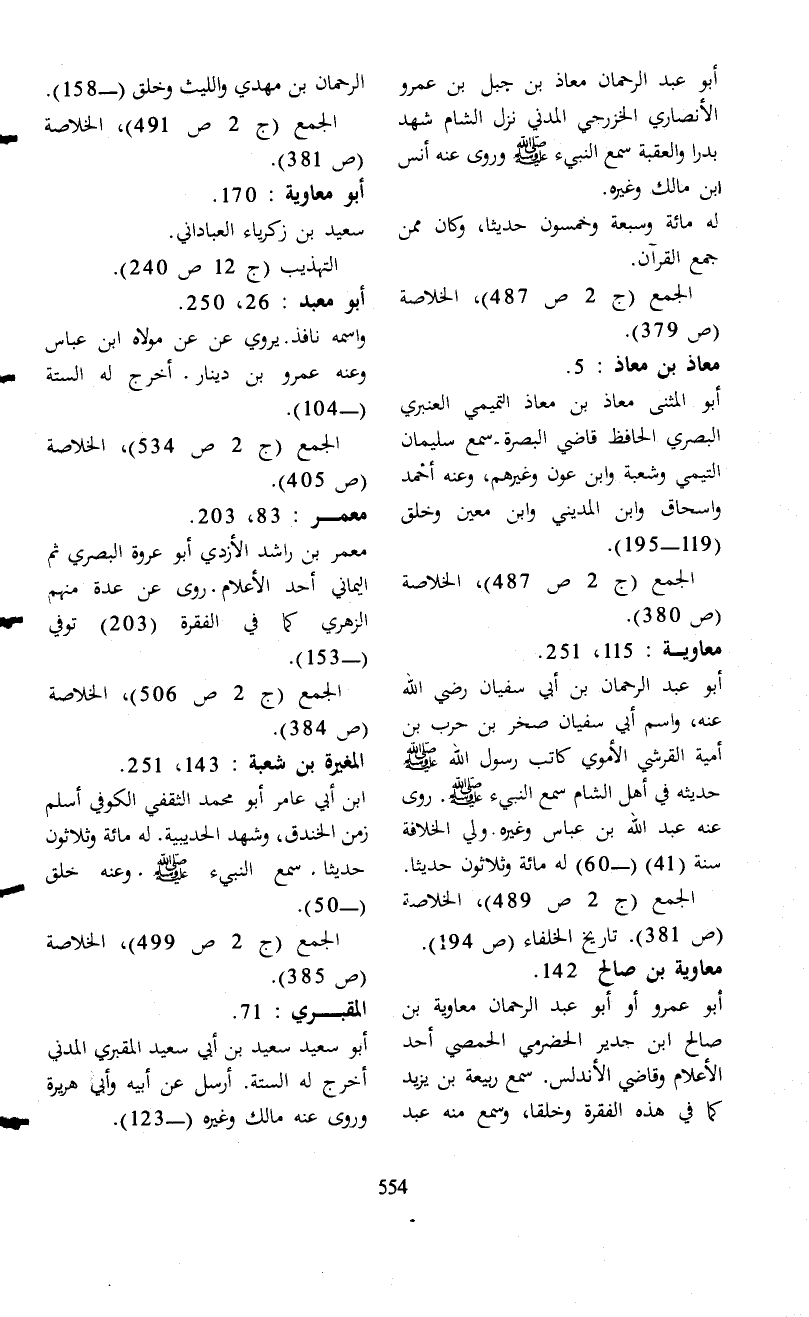 أبو عبد الرحمان معاذ بن جبل بن عمرو
الأنصاري الخزرجي المدني نزل الشام شهد
بدرا والعقبة سمع النبيء ﷺ وروى عنه أنس
ابن مالك وغيره.
له مائة وسبعة وخمسون حديثا، وكان ممن
جمع القرآن.
الجمع (ج 2 ص 487)، الخلاصة
(ص 379).
معاذ بن معاذ : 5.
أبو المثنى معاذ بن معاذ التميمي العنبري
البصري الحافظ قاضي البصرة. سمع سليمان
التيمي وشعبة وابن عون وغيرهم، وعنه أحمد
واسحاق وابن المديني وابن معين وخلق
(119—195).
الجمع (ج 2 ص 487)، الخلاصة
(ص 380).
معاويـة : 115، 251.
أبو عبد الرحمان بن أبي سفيان رضي الله
عنه، واسم أبي سفيان صخر بن حرب بن
أمية القرشي الأموي كاتب رسول الله ﷺ
حديثه في أهل الشام سمع النبيء ﷺ. روى
عنه عبد الله بن عباس وغيره. ولي الخلافة
سنة (41) (—60) له مائة وثلاثون حديثا.
الجمع (ج 2 ص 489)، الخلاصة
(ص 381). تاريخ الخلفاء (ص 194).
معاوية بن صالح 142.
أبو عمرو أو أبو عبد الرحمان معاوية بن
صالح ابن جدير الحضرمي الحمصي أحد
الأعلام وقاضي الأندلس. سمع ربيعة بن يزيد
كما في هذه الفقرة وخلقا، وسمع منه عبد
الرحمان بن مهدي والليث وخلق (—158).
الجمع (ج 2 ص 491)، الخلاصة
(ص 381).
أبو معاوية : 170.
سعيد بن زكرياء العباداني.
التهذيب (ج 12 ص 240).
أبو معبد : 26، 250.
واسمه نافذ. يروي عن عن مولاه ابن عباس
وعنه عمرو بن دينار. أخرج له الستة
(—104).
الجمع (ج 2 ص 534)، الخلاصة
(ص 405).
معمـــر : 83، 203.
معمر بن راشد الأزدي أبو عروة البصري ثم
اليماني أحد الأعلام. روى عن عدة منهم
الزهري كما في الفقرة (203) توفي
(—153).
الجمع (ج 2 ص 506)، الخلاصة
(ص 384).
المغيرة بن شعبة : 143، 251.
ابن أبي عامر أبو محمد الثقفي الكوفي أسلم
زمن الخندق، وشهد الحديبية. له مائة وثلاثون
حديثا. سمع النبيء ﷺ. وعنه خلق
(—50).
الجمع (ج 2 ص 499)، الخلاصة
(ص 385).
المقبــري : 71.
أبو سعيد سعيد بن أبي سعيد المقبري المدني
أخرج له الستة. أرسل عن أبيه وأبي هريرة
وروى عنه مالك وغيره (—123).
554